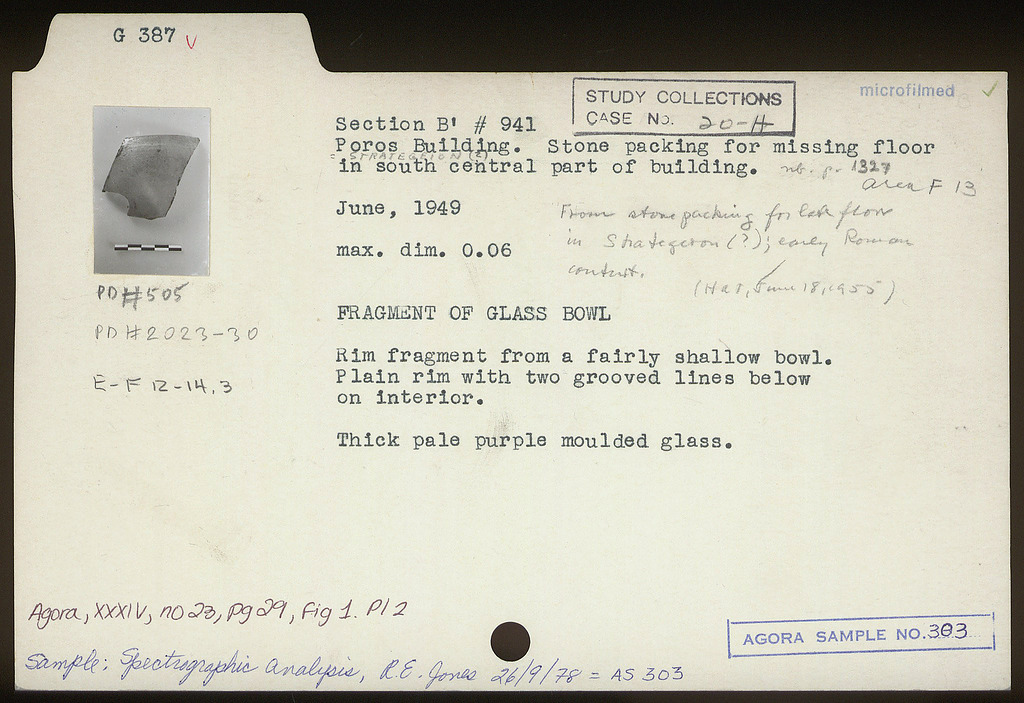 G 387 v
microfilmed
STUDY COLLECTIONS
CASE NO. 20-H
Section B' # 941
Poros Building. Stone packing for missing floor
= STRATEGEION (?)
in south central part of building. nb. p. 1327
area F 13
June, 1949
From stone packing for late floor
in Strategeion (?); early Roman
context.
(HAT, June 18, 1955)
max. dim. 0.06
PD#505
PD#2023-30
E-F 12-14.3
FRAGMENT OF GLASS BOWL
Rim fragment from a fairly shallow bowl.
Plain rim with two grooved lines below
on interior.
Thick pale purple moulded glass.
Agora, XXXIV, no 23, pg 29, Fig 1. Pl 2
AGORA SAMPLE NO. 303
Sample: Spectrographic analysis, R.E. Jones 26/9/78 = AS 303